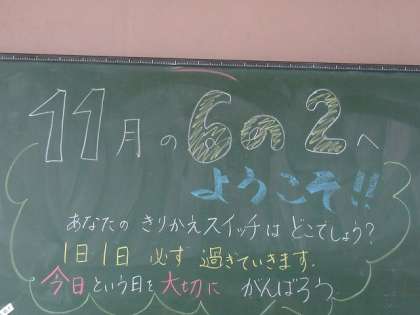 11月の6の2へ
ようこそ!!
あなたの きりかえスイッチは どこでしょう?
1日1日 必ず 過ぎていきます.
今日という日を大切に がんばろう